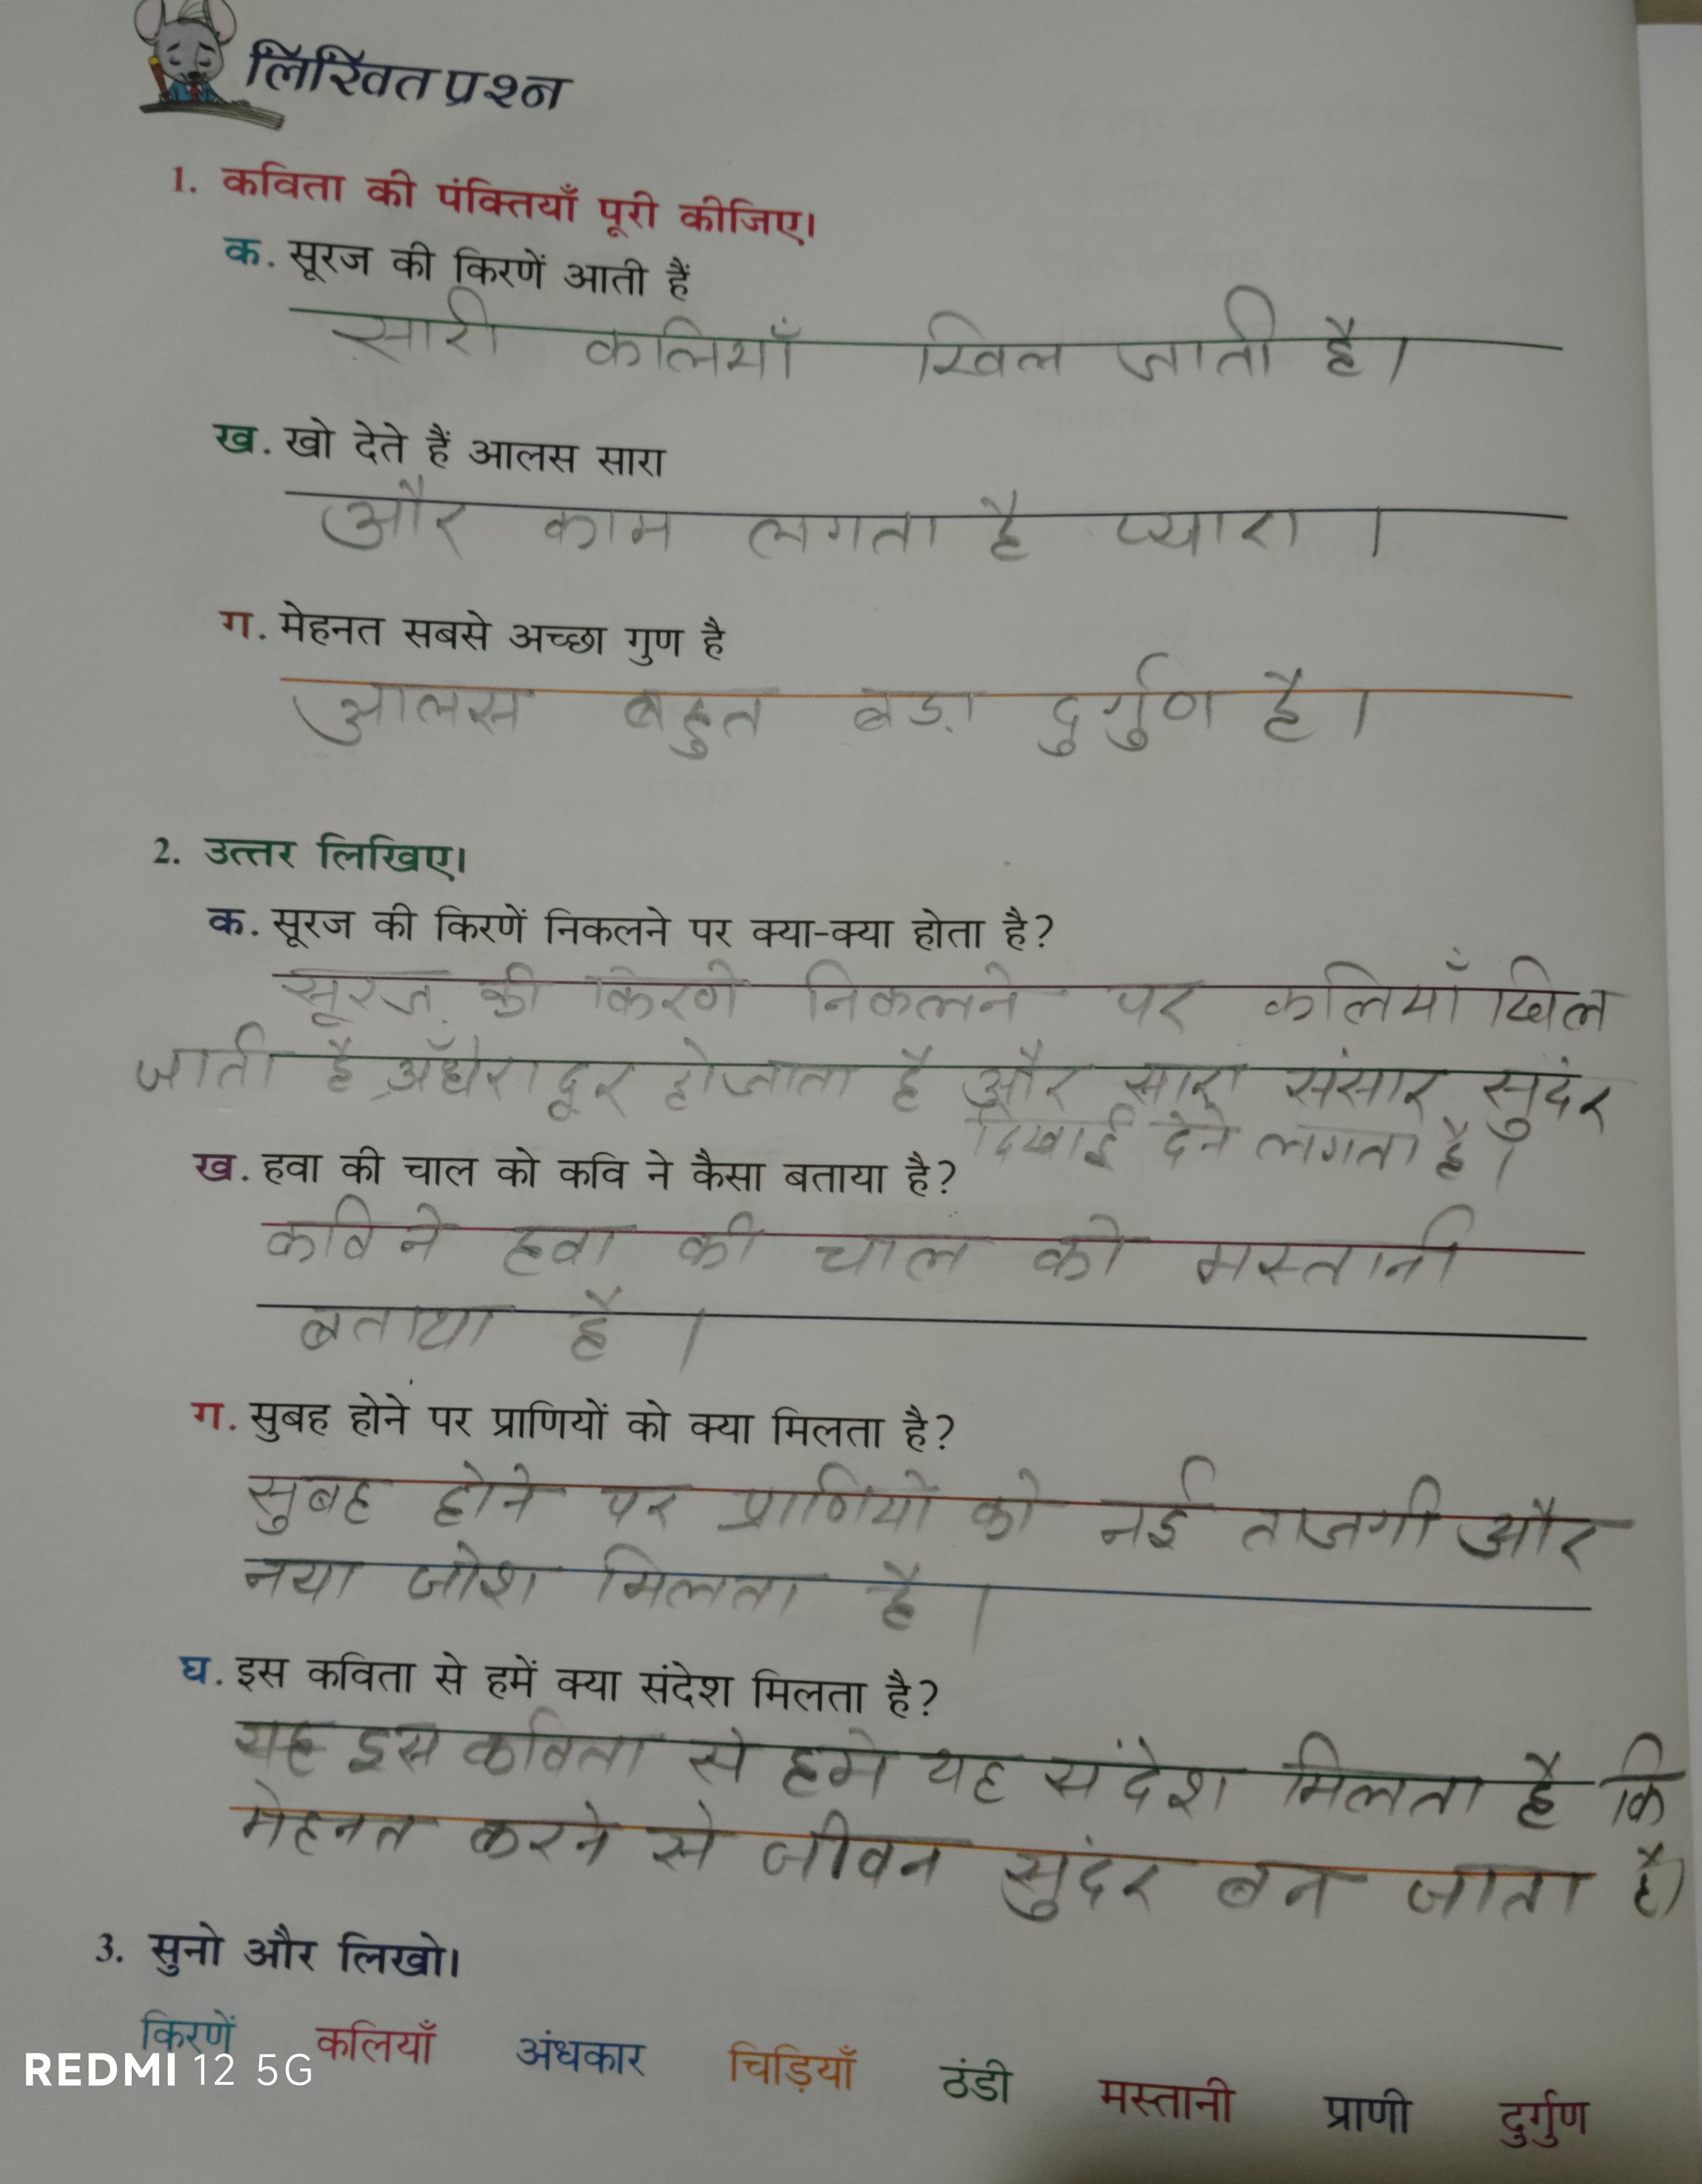 लिखित प्रश्न
1. कविता की पंक्तियाँ पूरी कीजिए।
क. सूरज की किरणें आती हैं
सारी कलियाँ खिल जाती है।
ख. खो देते हैं आलस सारा
और काम लगता है प्यारा ।
ग. मेहनत सबसे अच्छा गुण है
आलस बहुत बड़ा दुर्गुण है।
2. उत्तर लिखिए।
क. सूरज की किरणें निकलने पर क्या-क्या होता है?
सूरज की किरणे निकलने पर कलियाँ खिल
जाती है अँधेरा दूर हो जाता है और सारा संसार सुदंर
दिखाई देने लगता है।
ख. हवा की चाल को कवि ने कैसा बताया है?
कवि ने हवा की चाल को मस्तानी
बताया है ।
ग. सुबह होने पर प्राणियों को क्या मिलता है?
सुबह होने पर प्राणियो को नई ताजगी और
नया जोश मिलता है ।
घ. इस कविता से हमें क्या संदेश मिलता है?
यह इस कविता से हमे यह संदेश मिलता है कि
मेहनत करने से जीवन सुंदर बन जाता है।
3. सुनो और लिखो।
किरणें कलियाँ अंधकार चिड़ियाँ ठंडी मस्तानी प्राणी दुर्गुण
REDMI 12 5G